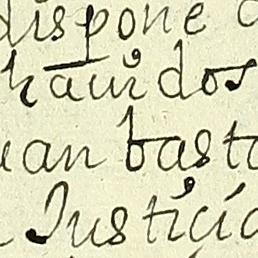 dispone
hauidos
uan basta
Justicia